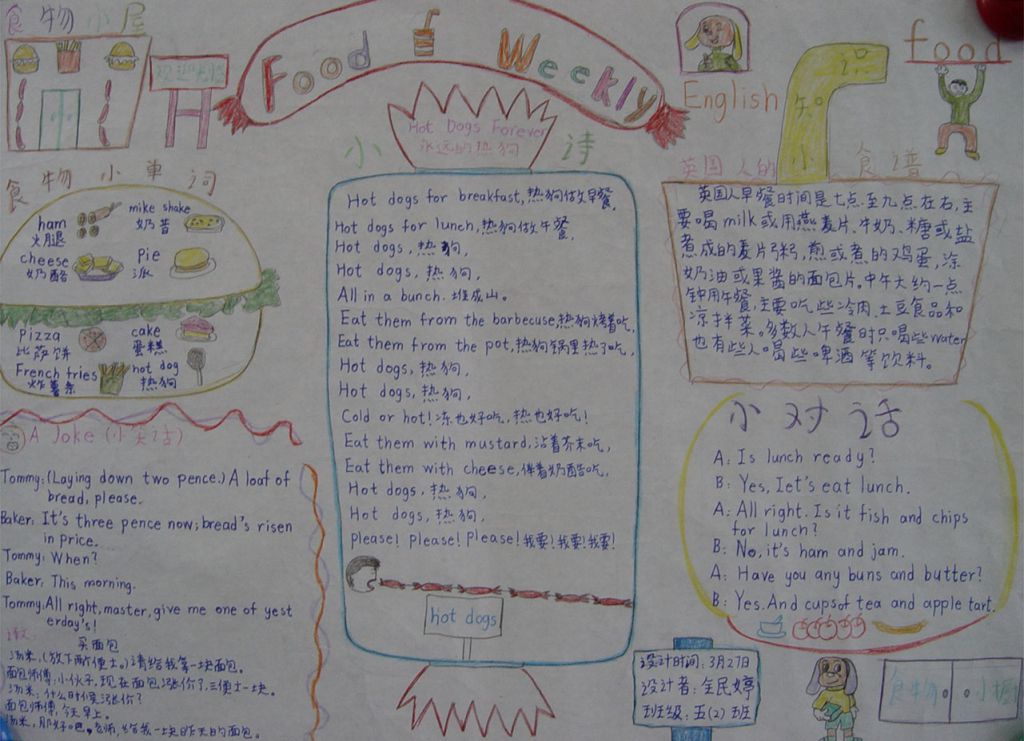 食物小屋
欢迎光临
Food Weekly
English
小知识
food
Hot Dogs Forever
永远的热狗
小诗
英国人的食谱
食物小单词
ham
火腿
mike shake
奶昔
cheese
奶酪
Pie
派
pizza
比萨饼
cake
蛋糕
French fries
炸薯条
hot dog
热狗
Hot dogs for breakfast,热狗做早餐,
Hot dogs for lunch,热狗做午餐,
Hot dogs,热狗,
Hot dogs,热狗,
All in a bunch.堆成山。
Eat them from the barbecuse,热狗烤着吃,
Eat them from the pot,热狗锅里热了吃,
Hot dogs,热狗,
Hot dogs,热狗,
Cold or hot!冻也好吃,热也好吃!
Eat them with mustard,沾着芥末吃,
Eat them with cheese,伴着奶酪吃,
Hot dogs,热狗,
Hot dogs,热狗,
Please! Please! Please!我要!我要!我要!
hot dogs
英国人早餐时间是七点至九点左右,主
要喝milk或用燕麦片、牛奶、糖或盐
煮成的麦片粥,煎或煮的鸡蛋,涂
奶油或果酱的面包片。中午大约一点
钟用午餐,主要吃些冷肉、土豆食品和
凉拌菜。多数人午餐时只喝些water
也有些人喝些啤酒等饮料。
A Joke (小笑话)
Tommy:(Laying down two pence.) A loaf of
bread, please.
Baker: It's three pence now; bread's risen
in price.
Tommy: When?
Baker: This morning.
Tommy: All right, master, give me one of yest
erday's!
买面包
汤米:(放下两便士。)请给我拿一块面包。
面包师傅:小伙子,现在面包涨价了,三便士一块。
汤米:什么时候涨价?
面包师傅:今天早上。
汤米:那好吧,老师,给我一块昨天的面包。
小对话
A: Is lunch ready?
B: Yes, let's eat lunch.
A: All right. Is it fish and chips
for lunch?
B: No, it's ham and jam.
A: Have you any buns and butter?
B: Yes. And cups of tea and apple tart.
设计时间:3月27日
设计者:全民婷
班级:五(2)班
食物小橱